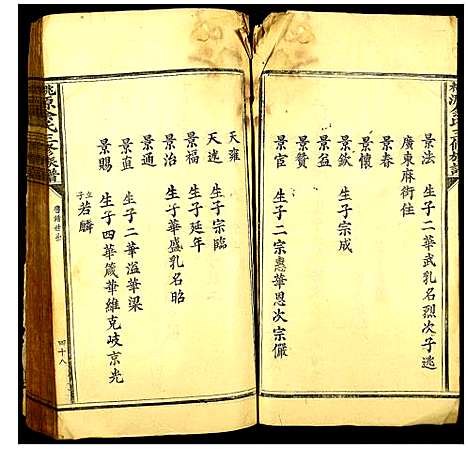 景法　生子二華武乳名烈次子逃
廣東麻街住
景春
景懷
景欽　生子宗成
景贊
景宦　生子二宗惠華恩次宗儼
天雍
天逵　生子宗臨
景福　生子延年
景治　生子華盛乳名昭
景通
景直　生子二華溢華梁
景賜　生子四華箴華維克岐京光
立子若麟
桃源 氏三修族譜
四十八